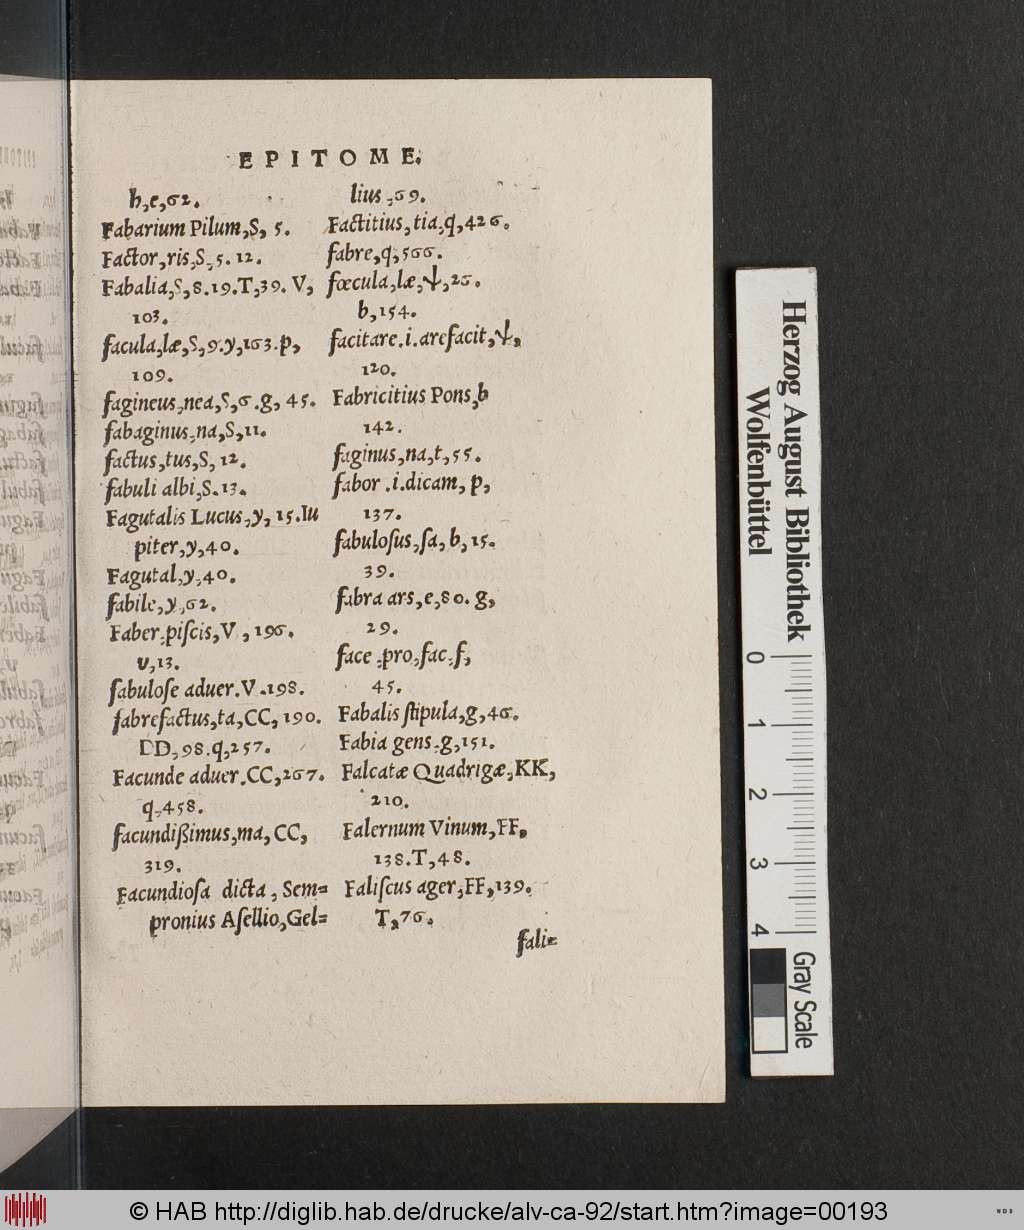 EPITOME.
h,e,62.
Fabarium Pilum,S, 5.
Factor,ris,S,5.12.
Fabalia,S,8.19.T,39. V,
103.
facula,læ,S,9.y,163.p,
109.
fagineus,nea,S,6.g, 45.
fabaginus,na,S,11.
factus,tus,S, 12.
fabuli albi,S.13.
Fagutalis Lucus,y, 15.Iu
piter,y,40.
Fagutal,y,40.
fabile,y,62.
Faber,piſcis,V, 196.
v,13.
fabuloſe aduer.V.198.
fabrefactus,ta,CC, 190.
DD,98.q,257.
Facunde aduer.CC,267.
q,458.
facundißimus,ma, CC,
319.
Facundioſa dicta, Sem=
pronius Aſellio,Gel=
lius,69.
Factitius,tia,q,426.
fabre,q,566.
fœcula,læ,ψ,26.
b,154.
facitare.i.arefacit,ψ,
120.
Fabricitius Pons,b
142.
faginus,na,t,55.
fabor.i.dicam, p,
137.
fabuloſus,ſa, b, 15.
39.
fabra ars,e,80. g,
29.
face,pro,fac,f,
45.
Fabalis ſtipula,g,46.
Fabia gens,g,151.
Falcatæ Quadrigæ,KK,
210.
Falernum Vinum,FF,
138.T,48.
Faliſcus ager,FF,139.
T,76.
fali=
Herzog August Bibliothek
Wolfenbüttel
0 1 2 3 4
Gray Scale
© HAB http://diglib.hab.de/drucke/alv-ca-92/start.htm?image=00193